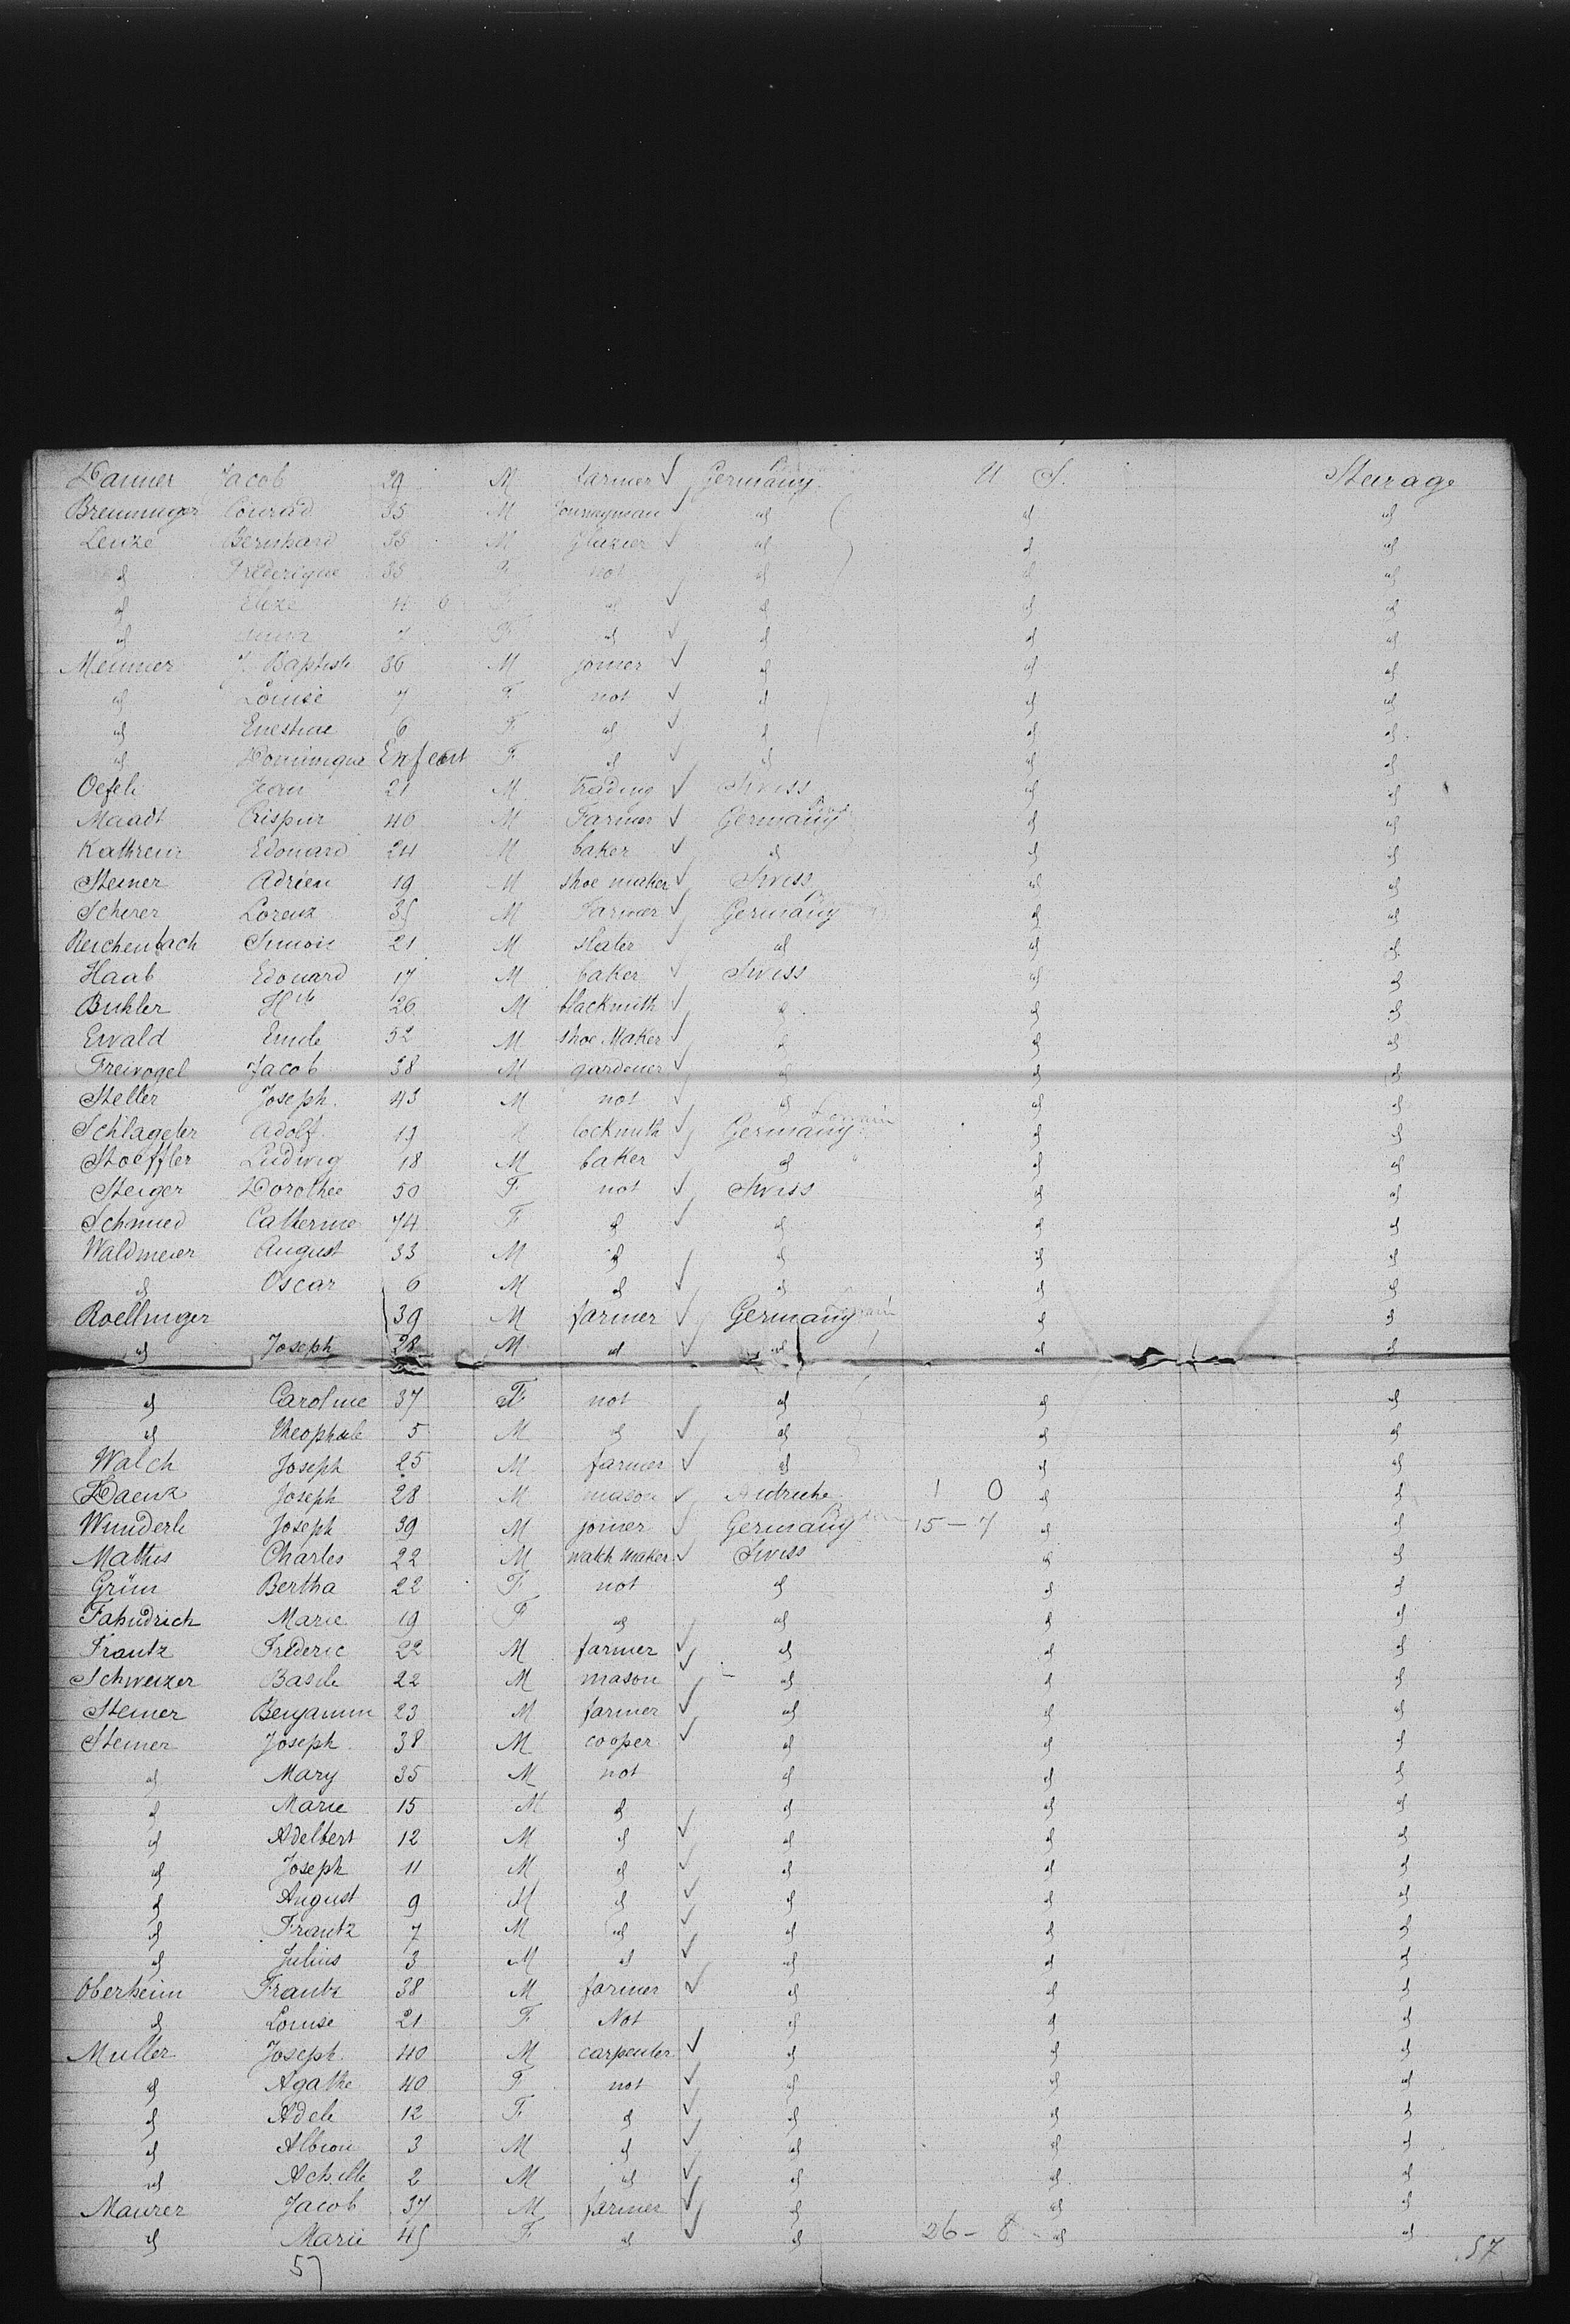 Danner Jacob 29 M farmer Germany U S. Stearage
Brenninger Conrad 35 M Journeyman id id id
Lenze Bernhard 38 M glazier id id id
id Fréderique 35 F not id id id
id Elize 11 6 F id id id id
id 7 F id id id id
Menner J. Baptiste 36 M joiner id id id
id Louise 7 F not id id id
id Enestine 6 F id id id id
id Dominique Enfant F id id id id
Oefeli Jean 21 M Trading Swiss id id
Maadt Crispin 46 M Farmer Germany id id
Kathrein Edouard 24 M baker id id id
Steiner Adrien 19 M shoe maker Swiss id id
Scherer Lorenz 35 M Farmer Germany id id
Reichenbach Simon 21 M slater id id id
Haab Edouard 17 M baker Swiss id id
Buhler Hte 26 M blacksmith id id id
Ewald Emile 52 M shoe Maker id id id
Freivogel Jacob 38 M gardener id id id
Steller Joseph 43 M not id id id
Schlageter Adolf 19 M locksmith Germany id id
Stoeffler Ludwig 18 M baker id id id
Steiger Dorothée 50 F not Swiss id id
Schmied Catherine 74 F id id id id
Waldmeier August 33 M id id id id
id Oscar 6 M id id id id
Roellinger 39 M farmer Germany id id
id Joseph 28 M id id id id
id Caroline 37 F not id id id
id Theophile 5 M id id id id
Walch Joseph 25 M farmer id id id
Daenz Joseph 28 M mason Autriche 1 0 id id
Wunderle Joseph 39 M joiner Germany 15 - 7 id id
Mathis Charles 22 M watch Maker Swiss id id
Grün Bertha 22 F not id id id
Fahndrich Marie 19 F id id id id
Frantz Fréderic 22 M farmer id id id
Schweizer Basile 22 M mason id id id
Steiner Benjamin 23 M farmer id id id
Steiner Joseph 38 M cooper id id id
id Mary 35 M not id id id
id Marie 15 M id id id id
id Adelbert 12 M id id id id
id Joseph 11 M id id id id
id August 9 M id id id id
id Frantz 7 M id id id id
id Julius 3 M id id id id
Oberheim Frantz 38 M farmer id id id
id Louise 21 F Not id id id
Muller Joseph 40 M carpenter id id id
id Agathe 40 F not id id id
id Adele 12 F id id id id
id Albion 3 M id id id id
id Achille 2 M id id id id
Maurer Jacob 37 M farmer id id id
id Marie 45 F id id 26 - 8 id id
57 57